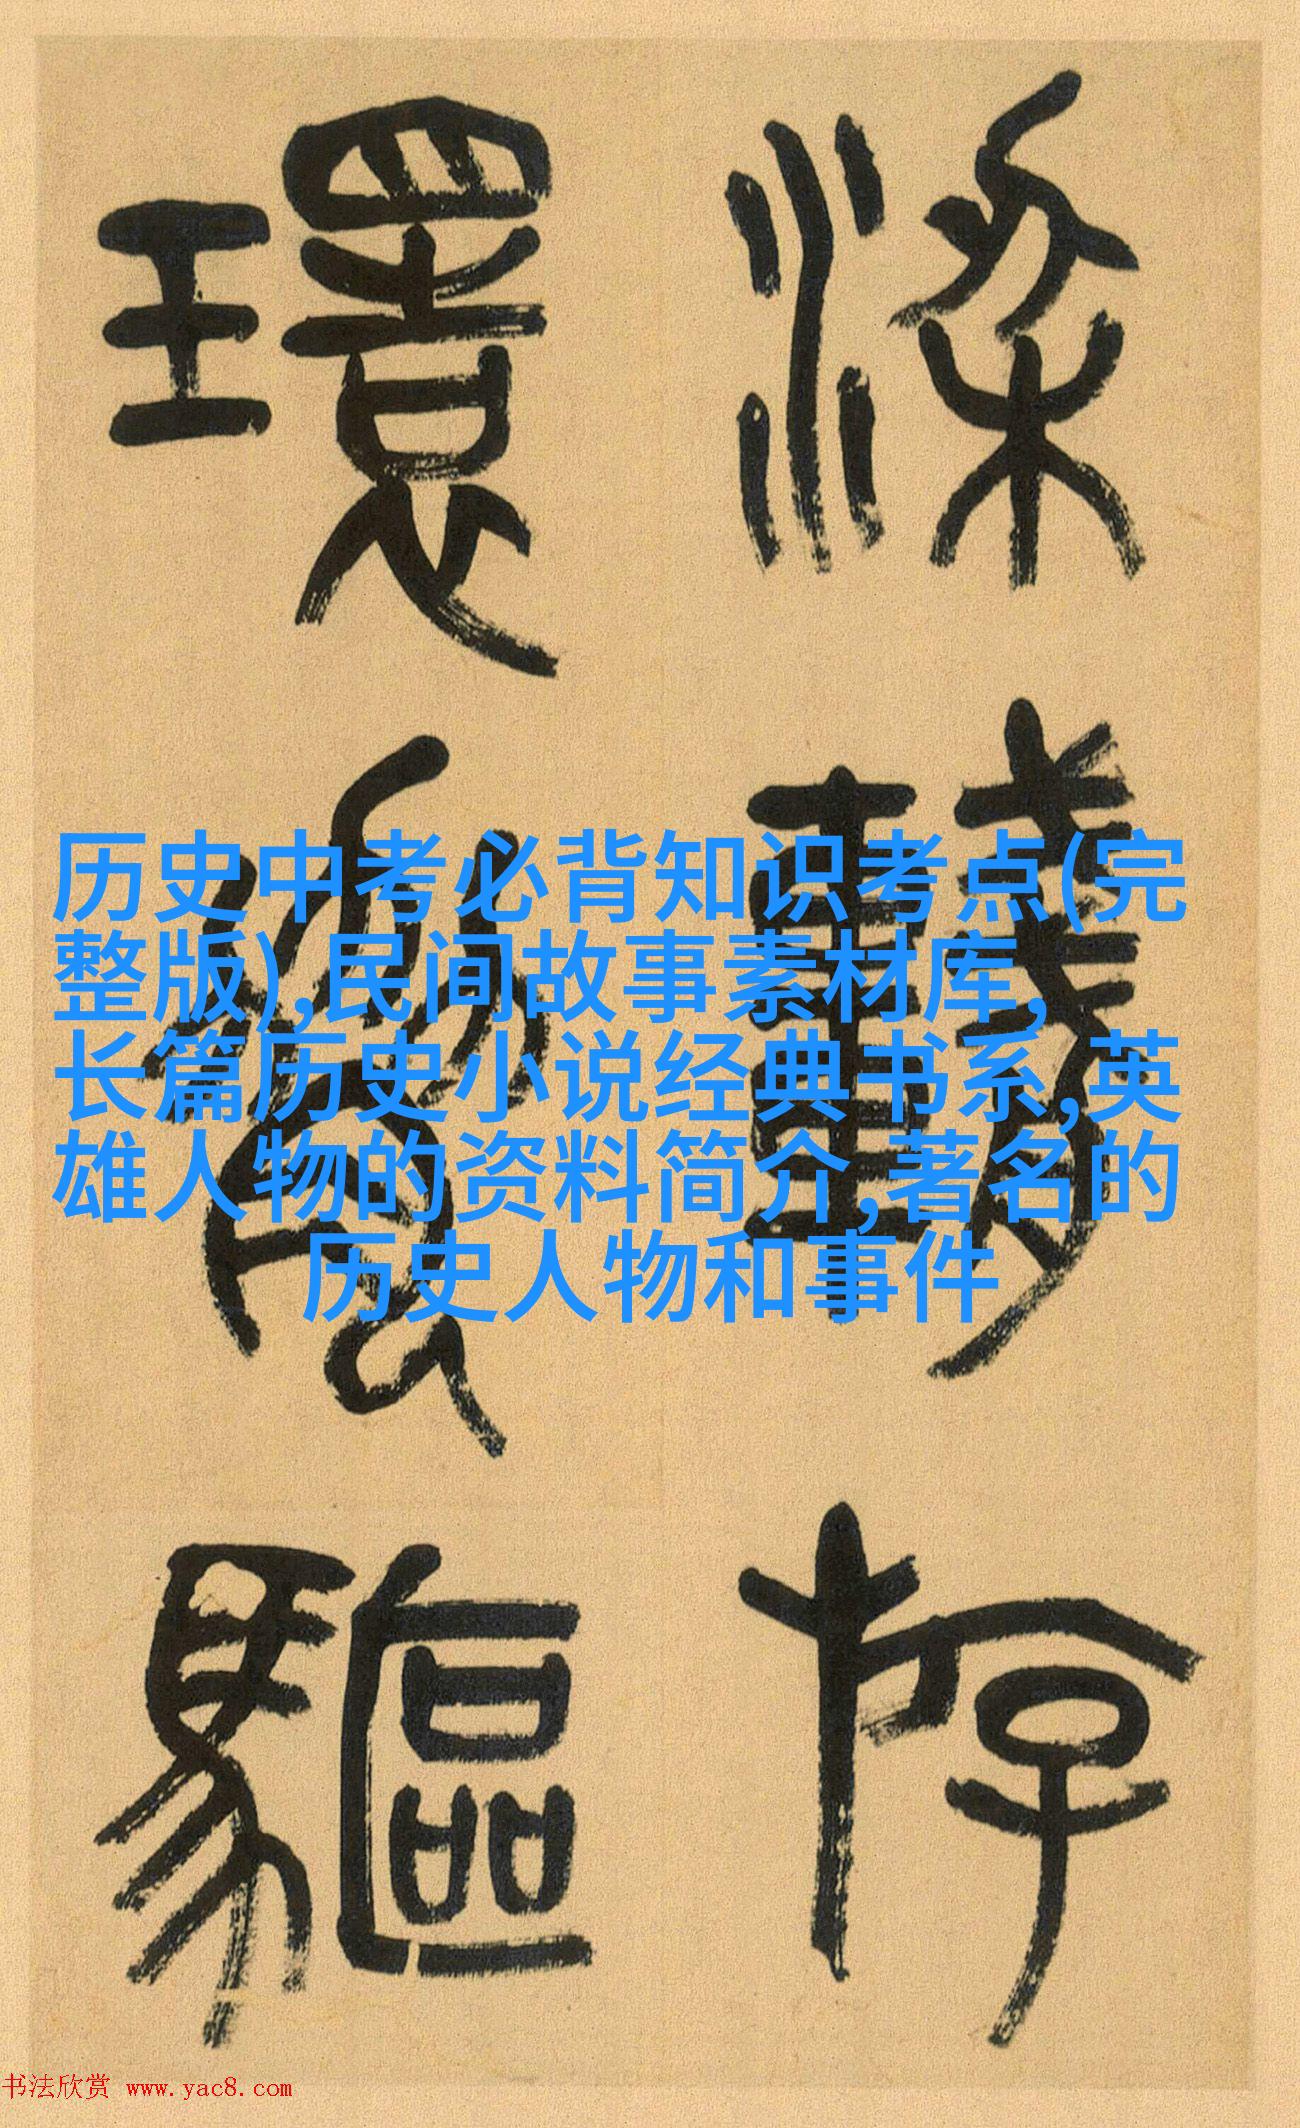 深
存
環
驅
历史中考必背知识考点(完
整版),民间故事素材库,
长篇历史小说经典书系,英
雄人物的资料简介,著名的
历史人物和事件
书法欣赏 www.yac8.com